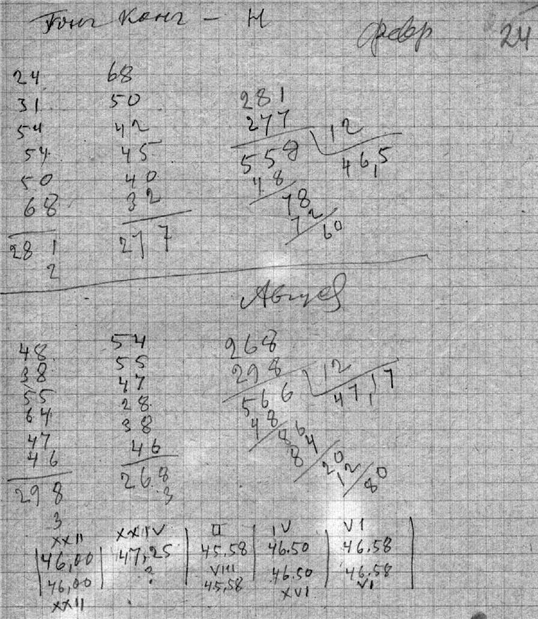 Гонг Конг - Н
февр 24
24 68
31 50 281
54 42 277 12
54 45 558 46,5
50 40 48
68 32 78
281 277 72
2 60
Август
48 54 268
38 55 298 12
55 47 566 47,17
64 28 48
47 38 86
46 46 84
298 268 20
3 3 12
80
XXII XXIV II IV VI
46,00 47,25 45,58 46.50 46.58
46,00 ? VIII 46.50 46.58
XXII 45,58 XVI VI